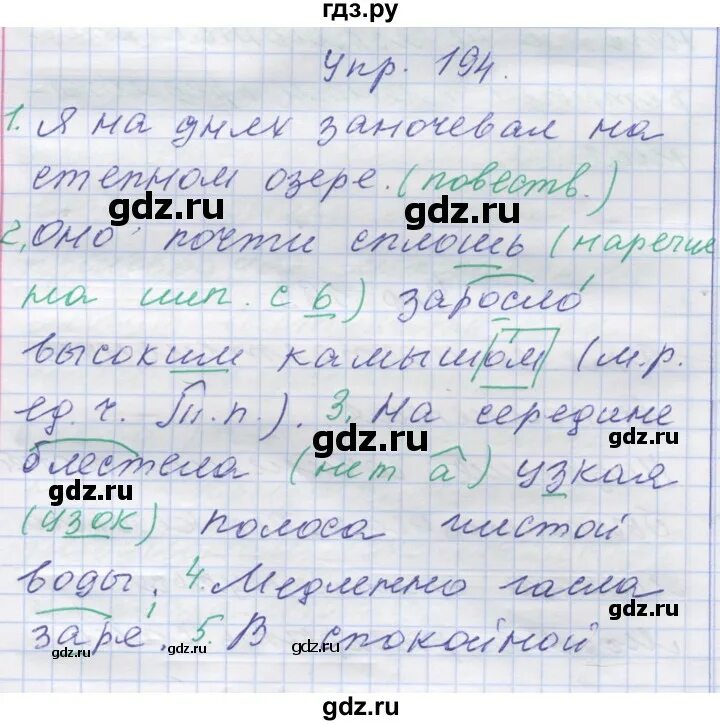 гдз.ру
Упр. 194.
1. Я на днях заночевал на
степном озере. (повеств.)
gdz.ru gdz.ru
2. Оно почти сплошь (наречие
на шип. с ь) заросло
высоким камышом (м.р.
ед. ч. Тп.п.). 3. На середине
gdz.ru gdz.ru
блестела (нет а) узкая
gdz.ru gdz.ru
(узок) полоса чистой
воды. 4. Медленно гасла
gdz.ru gdz.ru
заря. 5. В спокойной
gdz.ru gdz.ru gdz.ru
gdz.ru